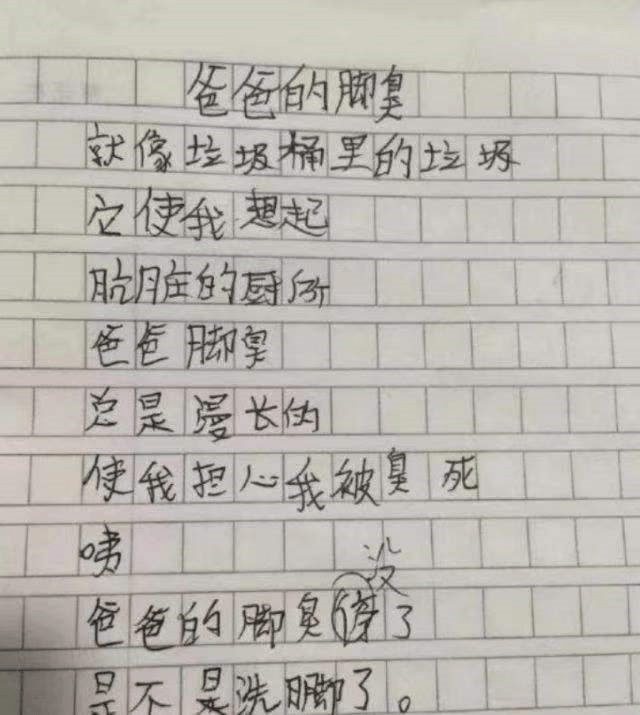 爸爸的脚臭
就像垃圾桶里的垃圾
它使我想起
肮脏的厕所
爸爸脚臭
总是漫长的
使我担心我被臭死
咦
没
爸爸的脚臭停了
是不是洗脚了。